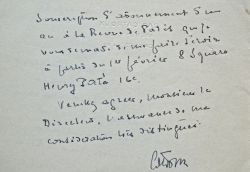 souscription d'abonnement d'un
an à la Revue de Paris que je
vous serais de me faire servir
à partir du 1er février 8 Square
Henry Paté 16e
Veuillez agréer, Monsieur le
Directeur, l'assurance de ma
considération très distinguée